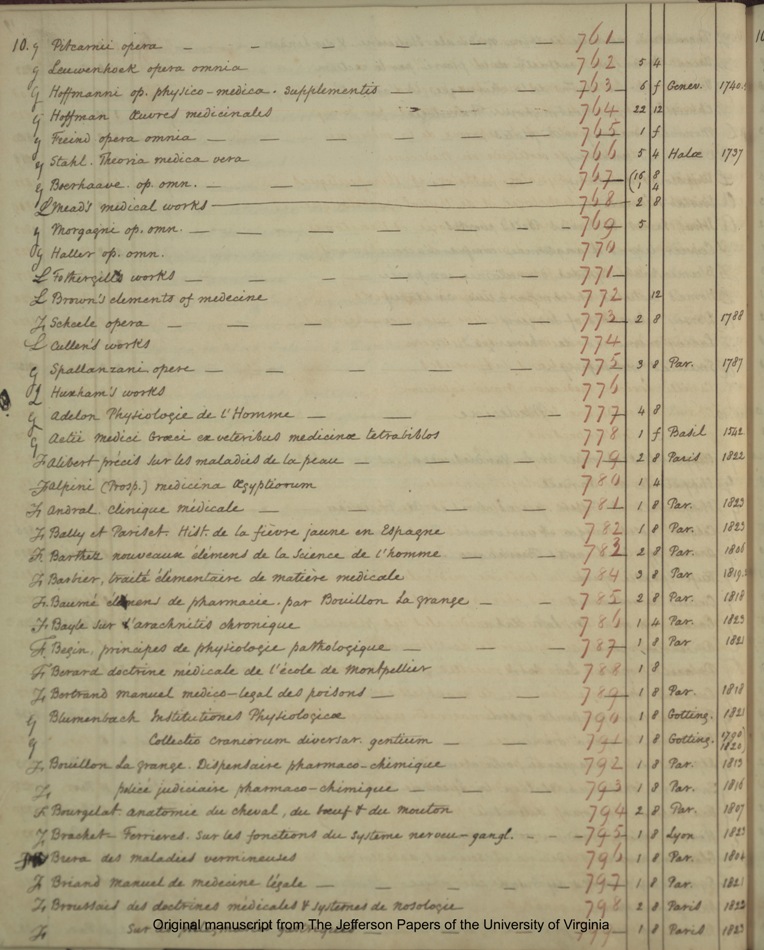 10. g Pitcarnii opera — — — — — — 761
g Leuwenhoek opera omnia 762 5 4
g Hoffmanni op. physico-medica. Supplementis — — — 763 6 f Genev. 1740.
g Hoffman Œuvres medicinales 764 22 12
g Freind opera omnia — — — — — 765 1 f
g Stahl. Theoria medica vera 766 5 4 Halæ 1737
g Boerhaave. op. omn. — — — — — 767 (16 8
1 4
L Mead's medical works 768 2 8
g Morgagni op. omn. — — — — — 769 5
g Haller op. omn. 770
L Fothergill's works — — — — — 771
L Brown's elements of medecine 772 12
F. Scheele opera — — — — — 773 2 8 1788
L Cullen's works 774
g Spallanzani opere — — — — — 775 3 8 Par. 1787
L Huxham's works 776
g Adelon Physiologie de l'Homme — — — — 777 4 8
g Aetii medici Græci ex veteribus medicinæ tetrabiblos 778 1 f Basil 1542
F. Alibert précis sur les maladies de la peau — — — — 779 2 8 Paris 1822
F. Alpini (Prosp.) medicina Ægyptiorum 780 1 4
F. Andral. clinique médicale — — — — — 781 1 8 Par. 1823
F. Bally et Pariset. Hist. de la fièvre jaune en Espagne 782 1 8 Par. 1823
F. Barthez nouveaux élémens de la Science de l'homme — — — 783 2 8 Par. 1806
F. Barbier, traité élémentaire de matière medicale 784 3 8 Par 1819.
F. Baumé élémens de pharmacie. par Bouillon La grange — — 785 2 8 Par. 1818
F. Bayle sur l'arachnitis chronique 786 1 4 Par. 1823
F. Begin, principes de physiologie pathologique — — — 787 1 8 Par 1821
F. Berard doctrine médicale de l'école de Montpellier 788 1 8
F. Bertrand manuel medico-legal des poisons — — — 789 1 8 Par. 1818
g Blumenbach Institutiones Physiologicæ 790 1 8 Gotting. 1821
g Collectio craniorum diversar. gentium — — — 791 1 8 Gotting. 1790)
1820)
F. Bouillon La grange. Dispensaire pharmaco-chimique 792 1 8 Par. 1813
F. police judiciaire pharmaco-chimique — — — 793 1 8 Par. 1816
F. Bourgelat anatomie du cheval, du bœuf & du mouton 794 2 8 Par. 1807
F. Brachet Ferrieres. Sur les fonctions du Systeme nerveu-gangl. - - 795 1 8 Lyon 1823
Brera des maladies vermineuses 796 1 8 Par. 1804
F. Briand manuel de medecine légale — — — — 797 1 8 Par. 1821
F. Broussais des doctrines médicales & systemes de nosologie 798 2 8 Paris 1822
F. Sur 1 8 Paris 1823
Original manuscript from The Jefferson Papers of the University of Virginia
10